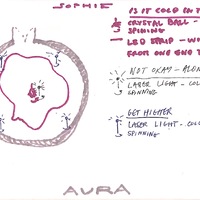 SOPHIE
IS IT COLD IN TH
CRYSTAL BALL -
SPINING
LED STRIP - WI
FROM ONE END T
NOT OKAY - ALON
LASER LIGHT - COL
SPINNING
GET HIGHER
LASER LIGHT - COL
SPINNING
AURA